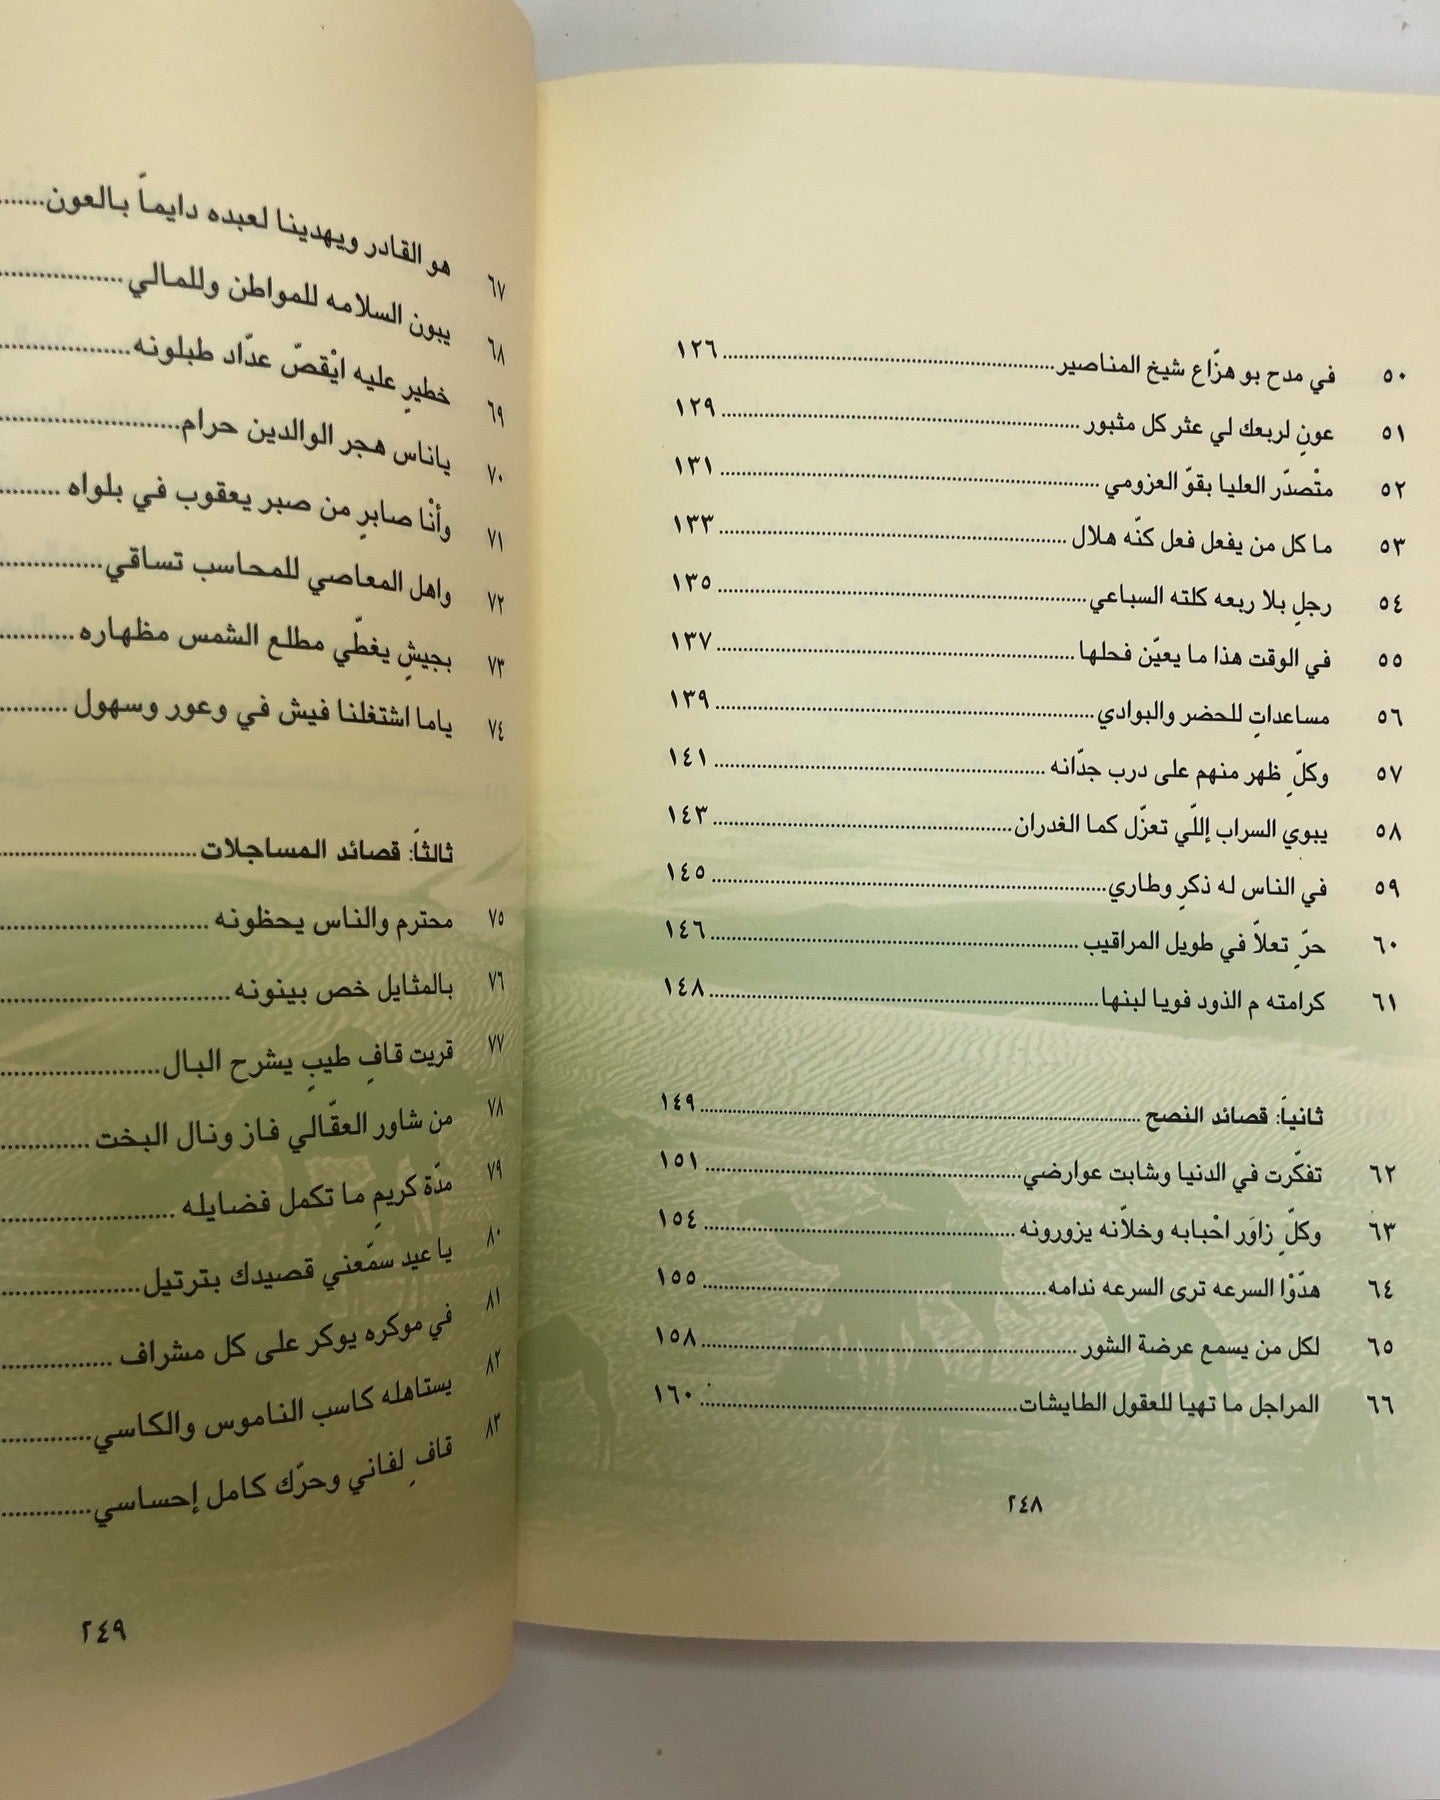 ٥٠ في مدح بو هزّاع شيخ المناصير ١٢٦
٥١ عونٍ لربعك لي عثر كل مثبور ١٢٩
٥٢ متْصدّر العليا بقوّ العزومي ١٣١
٥٣ ما كل من يفعل فعل كنّه هلال ١٣٣
٥٤ رجلٍ بلا ربعه كلته السباعي ١٣٥
٥٥ في الوقت هذا ما يعيّن فحلها ١٣٧
٥٦ مساعداتٍ للحضر والبوادي ١٣٩
٥٧ وكلٍّ ظهر منهم على درب جدّانه ١٤١
٥٨ يبوي السراب إللّي تعزّل كما الغدران ١٤٣
٥٩ في الناس له ذكرٍ وطاري ١٤٥
٦٠ حرٍّ تعلاّ في طويل المراقيب ١٤٦
٦١ كرامته م الذود فويا لبنها ١٤٨
ثانياً: قصائد النصح ١٤٩
٦٢ تفكّرت في الدنيا وشابت عوارضي ١٥١
٦٣ وكلٍّ زاوَر احْبابه وخلاّنه يزورونه ١٥٤
٦٤ هدّوْا السرعه ترى السرعه ندامه ١٥٥
٦٥ لكل من يسمع عرضة الشور ١٥٨
٦٦ المراجل ما تهيا للعقول الطايشات ١٦٠
٢٤٨
٦٧ هو القادر ويهدينا لعبده دايماً بالعون
٦٨ يبون السلامه للمواطن وللمالي
٦٩ خطيرٍ عليه ايْقصّ عدّاد طبلونه
٧٠ ياناس هجر الوالدين حرام
٧١ وأنْا صابرٍ من صبر يعقوب في بلواه
٧٢ واهل المعاصي للمحاسب تساقي
٧٣ بجيشٍ يغطّي مطلع الشمس مظهاره
٧٤ ياما اشتغلنا فيش في وعور وسهول
ثالثاً: قصائد المساجلات
٧٥ محترم والناس يحظونه
٧٦ بالمثايل خص بينونه
٧٧ قريت قافٍ طيبٍ يشرح البال
٧٨ من شاور العقّالي فاز ونال البخت
٧٩ مدّة كريمٍ ما تكمل فضايله
٨٠ يا عيد سمّعني قصيدك بترتيل
٨١ في موكره يوكر على كل مشراف
٨٢ يستاهله كاسب الناموس والكاسي
٨٣ قافٍ لفاني وحرّك كامل إحساسي
٢٤٩